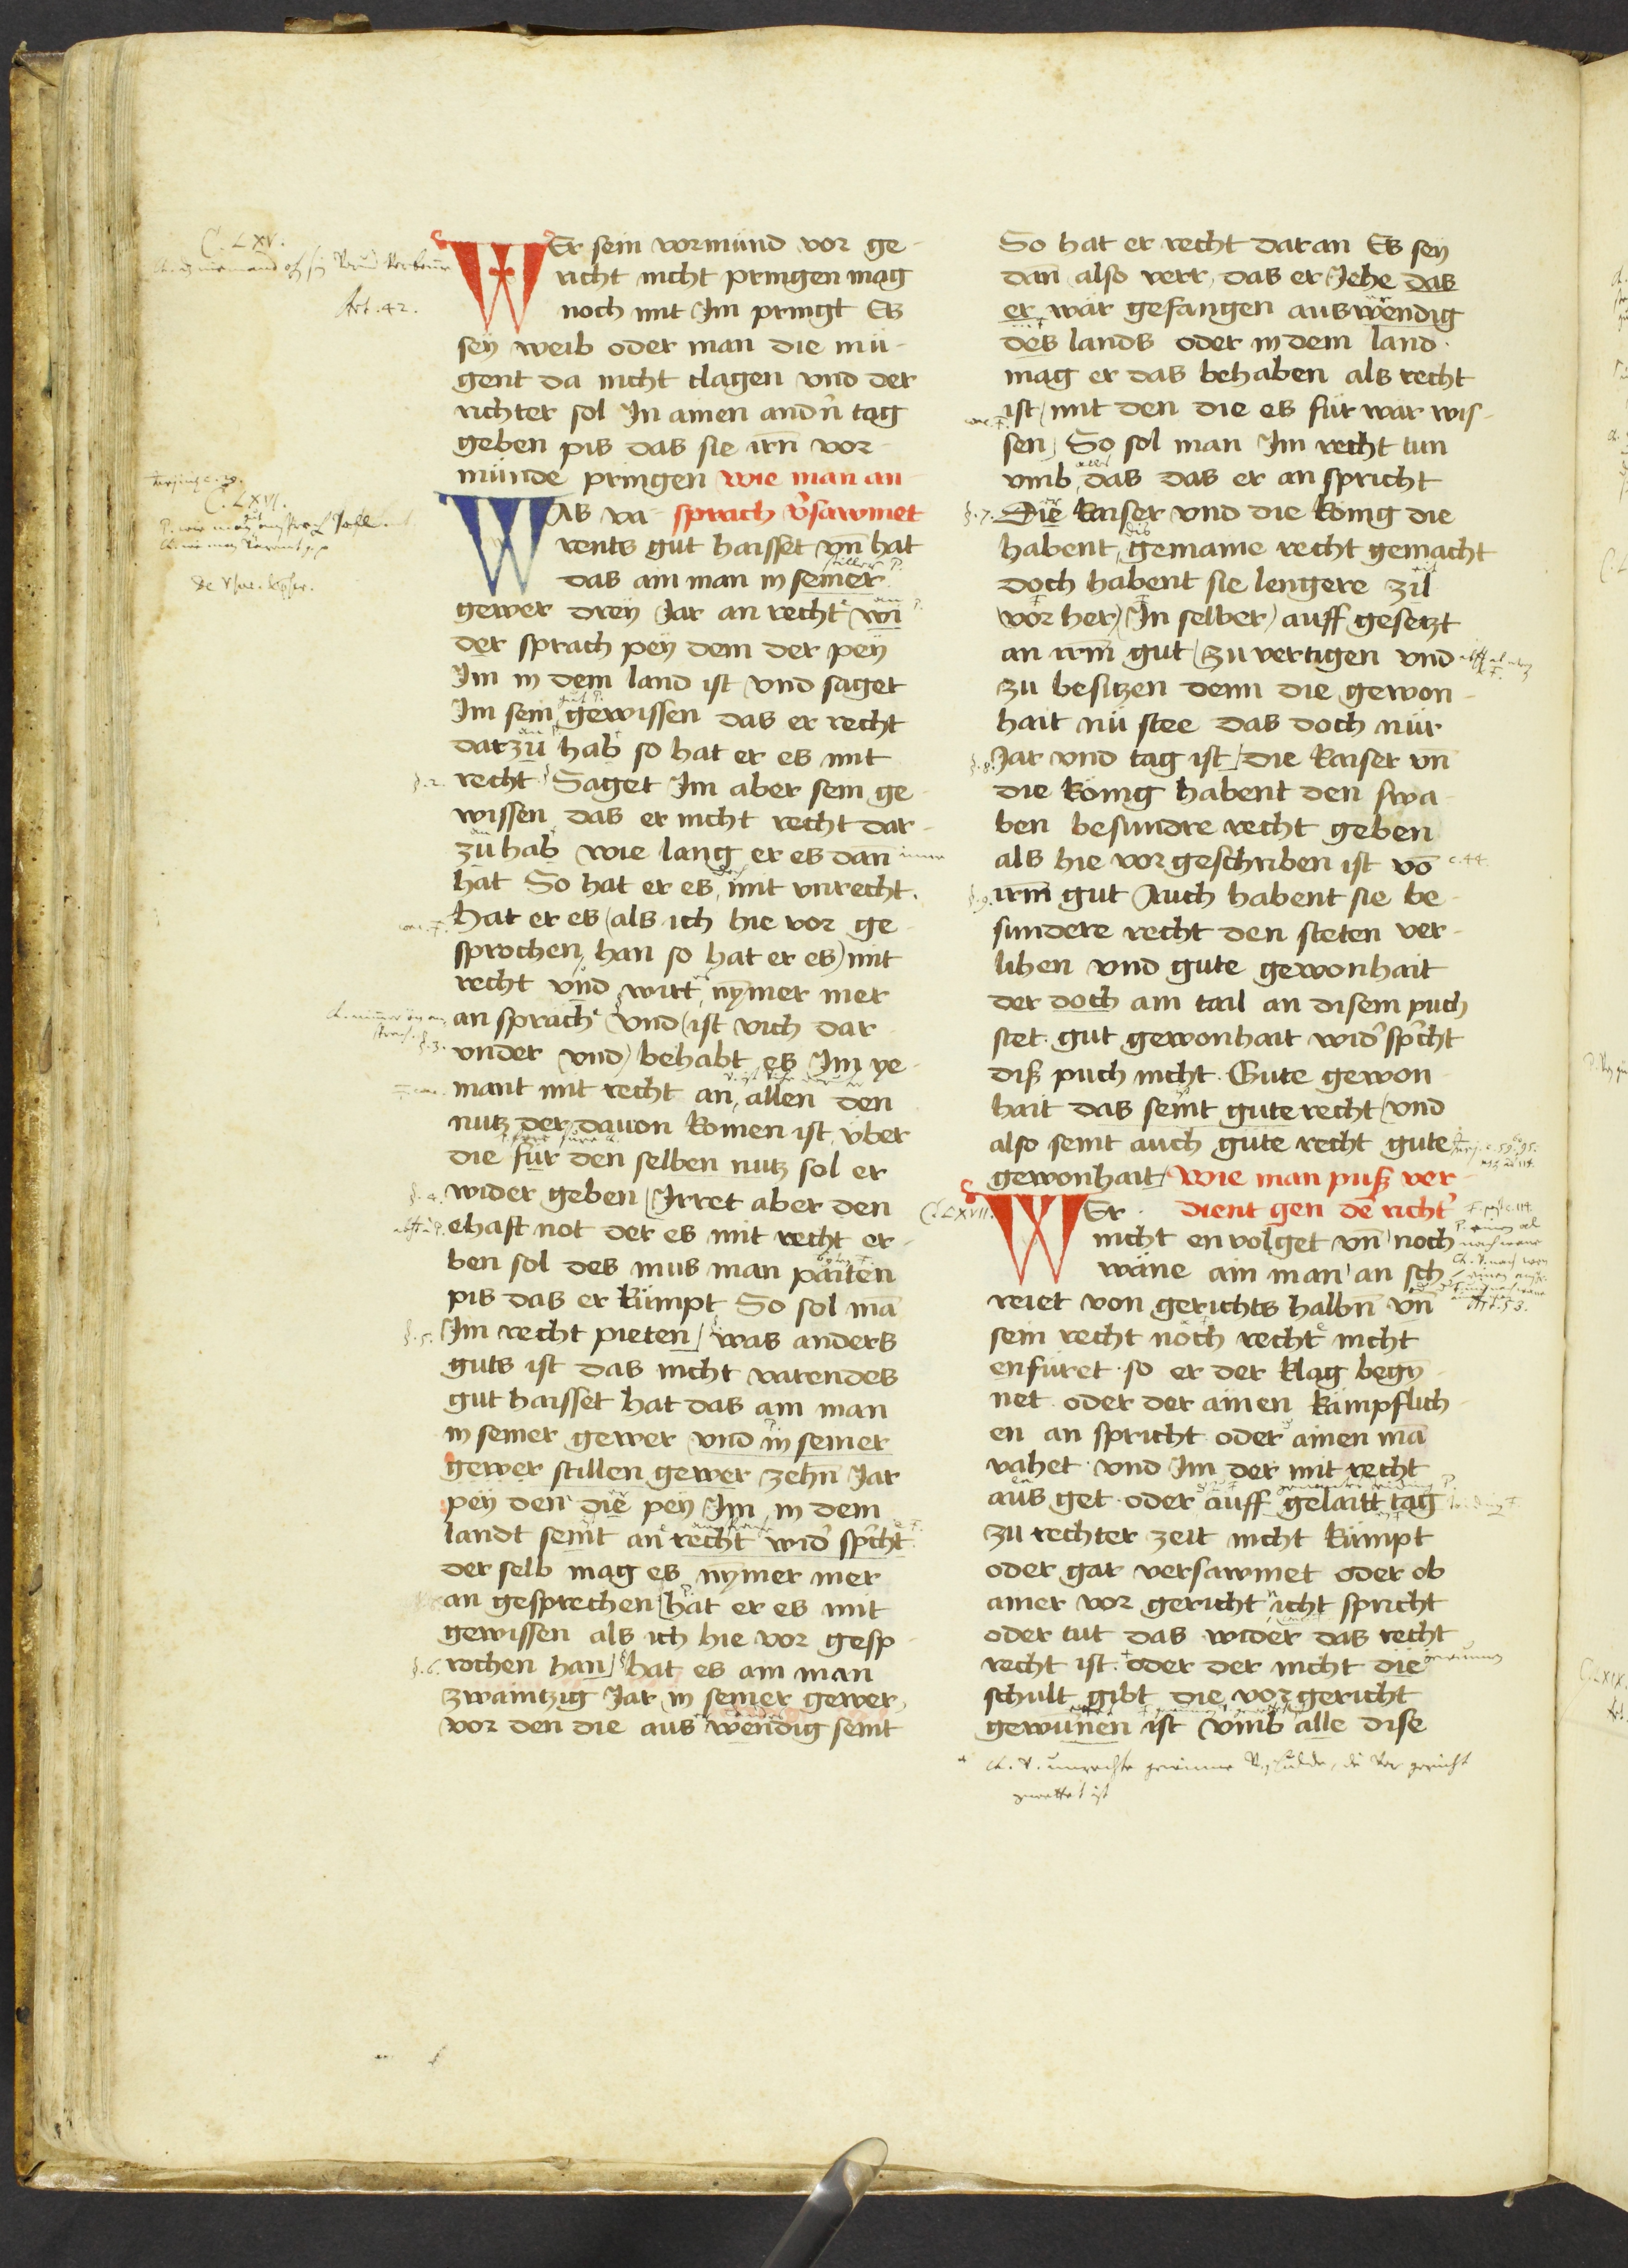 WEr sein vormünd vor ge-
richt nicht pringen mag
noch mit Im pringt Es
seÿ weib oder man die mü-
gent da nicht clagen vnd der
richter sol In ainen andn̄ tag
geben pis das sie irn̄ vor-
münde pringen wie man an-
WAs va- sprach v̾sawmet
rents gut haisset vn̄ hat
das ain man in seiner
gewer dreÿ Jar an recht wi
der sprach peÿ dem der peÿ
Im in dem land ist vnd saget
Im sein gewissen das er recht
darzu hab so hat er es mit
recht Saget Im aber sein ge-
wissen das er nicht recht dar-
zu hab wie lang er es dan̄
hat So hat er es mit vnrecht.
hat er es als ich hie vor ge-
sprochen han so hat er es mit
recht vnd wirt nym̄er mer
an sprach vnd ist vich dar-
vnder vnd behabt es Im ye-
mant mit recht an allen den
nutz der dauon komen ist vber
die für den selben nutz sol er
wider geben Irret aber den
ehaft not der es mit recht er-
ben sol des mus man paiten
pis das er kümpt So sol mā
Im recht pieten was anders
guts ist das nicht varendes
gut haisset hat das ain man
in seiner gewer vnd in seiner
gewer stillen gewer zehn̄ Jar
peÿ den die peÿ Im in dem
landt seint an recht wid̾ sp̾cht
der selb mag es nym̄er mer
an gesprechen hat er es mit
gewissen als ich hie vor gesp-
rochen han hat es ain man
zwaintzig Jar in seiner gewer
vor den die aus wendig seint
So hat er recht daran Es seÿ
dan̄ also verr das er Jehe das
er wär gefangen auswendig
des lands oder in dem land.
mag er das behaben als recht
ist mit den die es für war wis-
sen So sol man Im recht tun
vmb das das er an spricht
Die kaiser vnd die könig die
habent gemaine recht gemacht
doch habent sie lengere zil
vor her In selber auff gesetzt
an irm̄ gut zu vertigen vnd
zu besitzen denn die gewon-
hait nü stee das doch nür
Jar vnd tag ist die kaiser vn̄
die könig habent den swa-
ben besundre recht geben
als hie vor geschriben ist vō
irm̄ gut Auch habent sie be-
sundere recht den steten ver-
lihen vnd gute gewonhait
der doch ain tail an disem puch
stet. gut gewonhait wid̾ sp̾cht
diß puch nicht. Gute gewon-
hait das seint gute recht vnd
also seint auch gute recht gute
gewonhait wie man puß ver-
WEr. dient gen dē richt̾
nicht en volget vn̄ noch
wäne ain man an sch
reiet von gerichts halbn̄ vn̄
sein recht noch recht nicht
enfüret. so er der klag begÿ-
net oder der ainen kämpflich-
en an spricht oder ainen mā
vahet. vnd Im der mit recht
aus get. oder auff gelaitt tag
zu rechter zeit nicht kümpt
oder gar versawmet oder ob
ainer vor gericht icht spricht
oder tut das wider das recht
recht ist. oder der nicht die
schult gibt die vor gericht
gewunnen ist vmb alle dise
C. LXV.
Art. 42.
C. LXVI.
§. 2.
§. 3.
§. 4.
§. 5.
§. 6.
§. 7.
§. 8.
c. 44.
§. 9.
C. LXVII.
Art. 53.